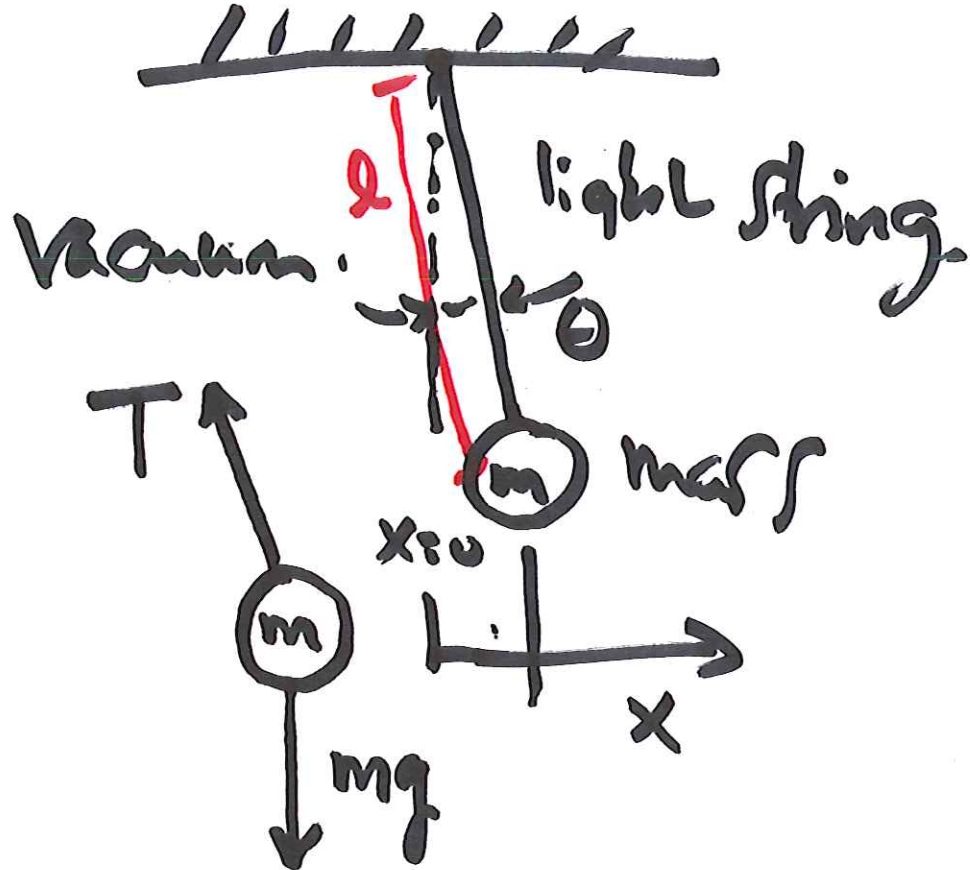 l
light string
Vacuum.
θ
T
m
mass
x=0
m
x
mg